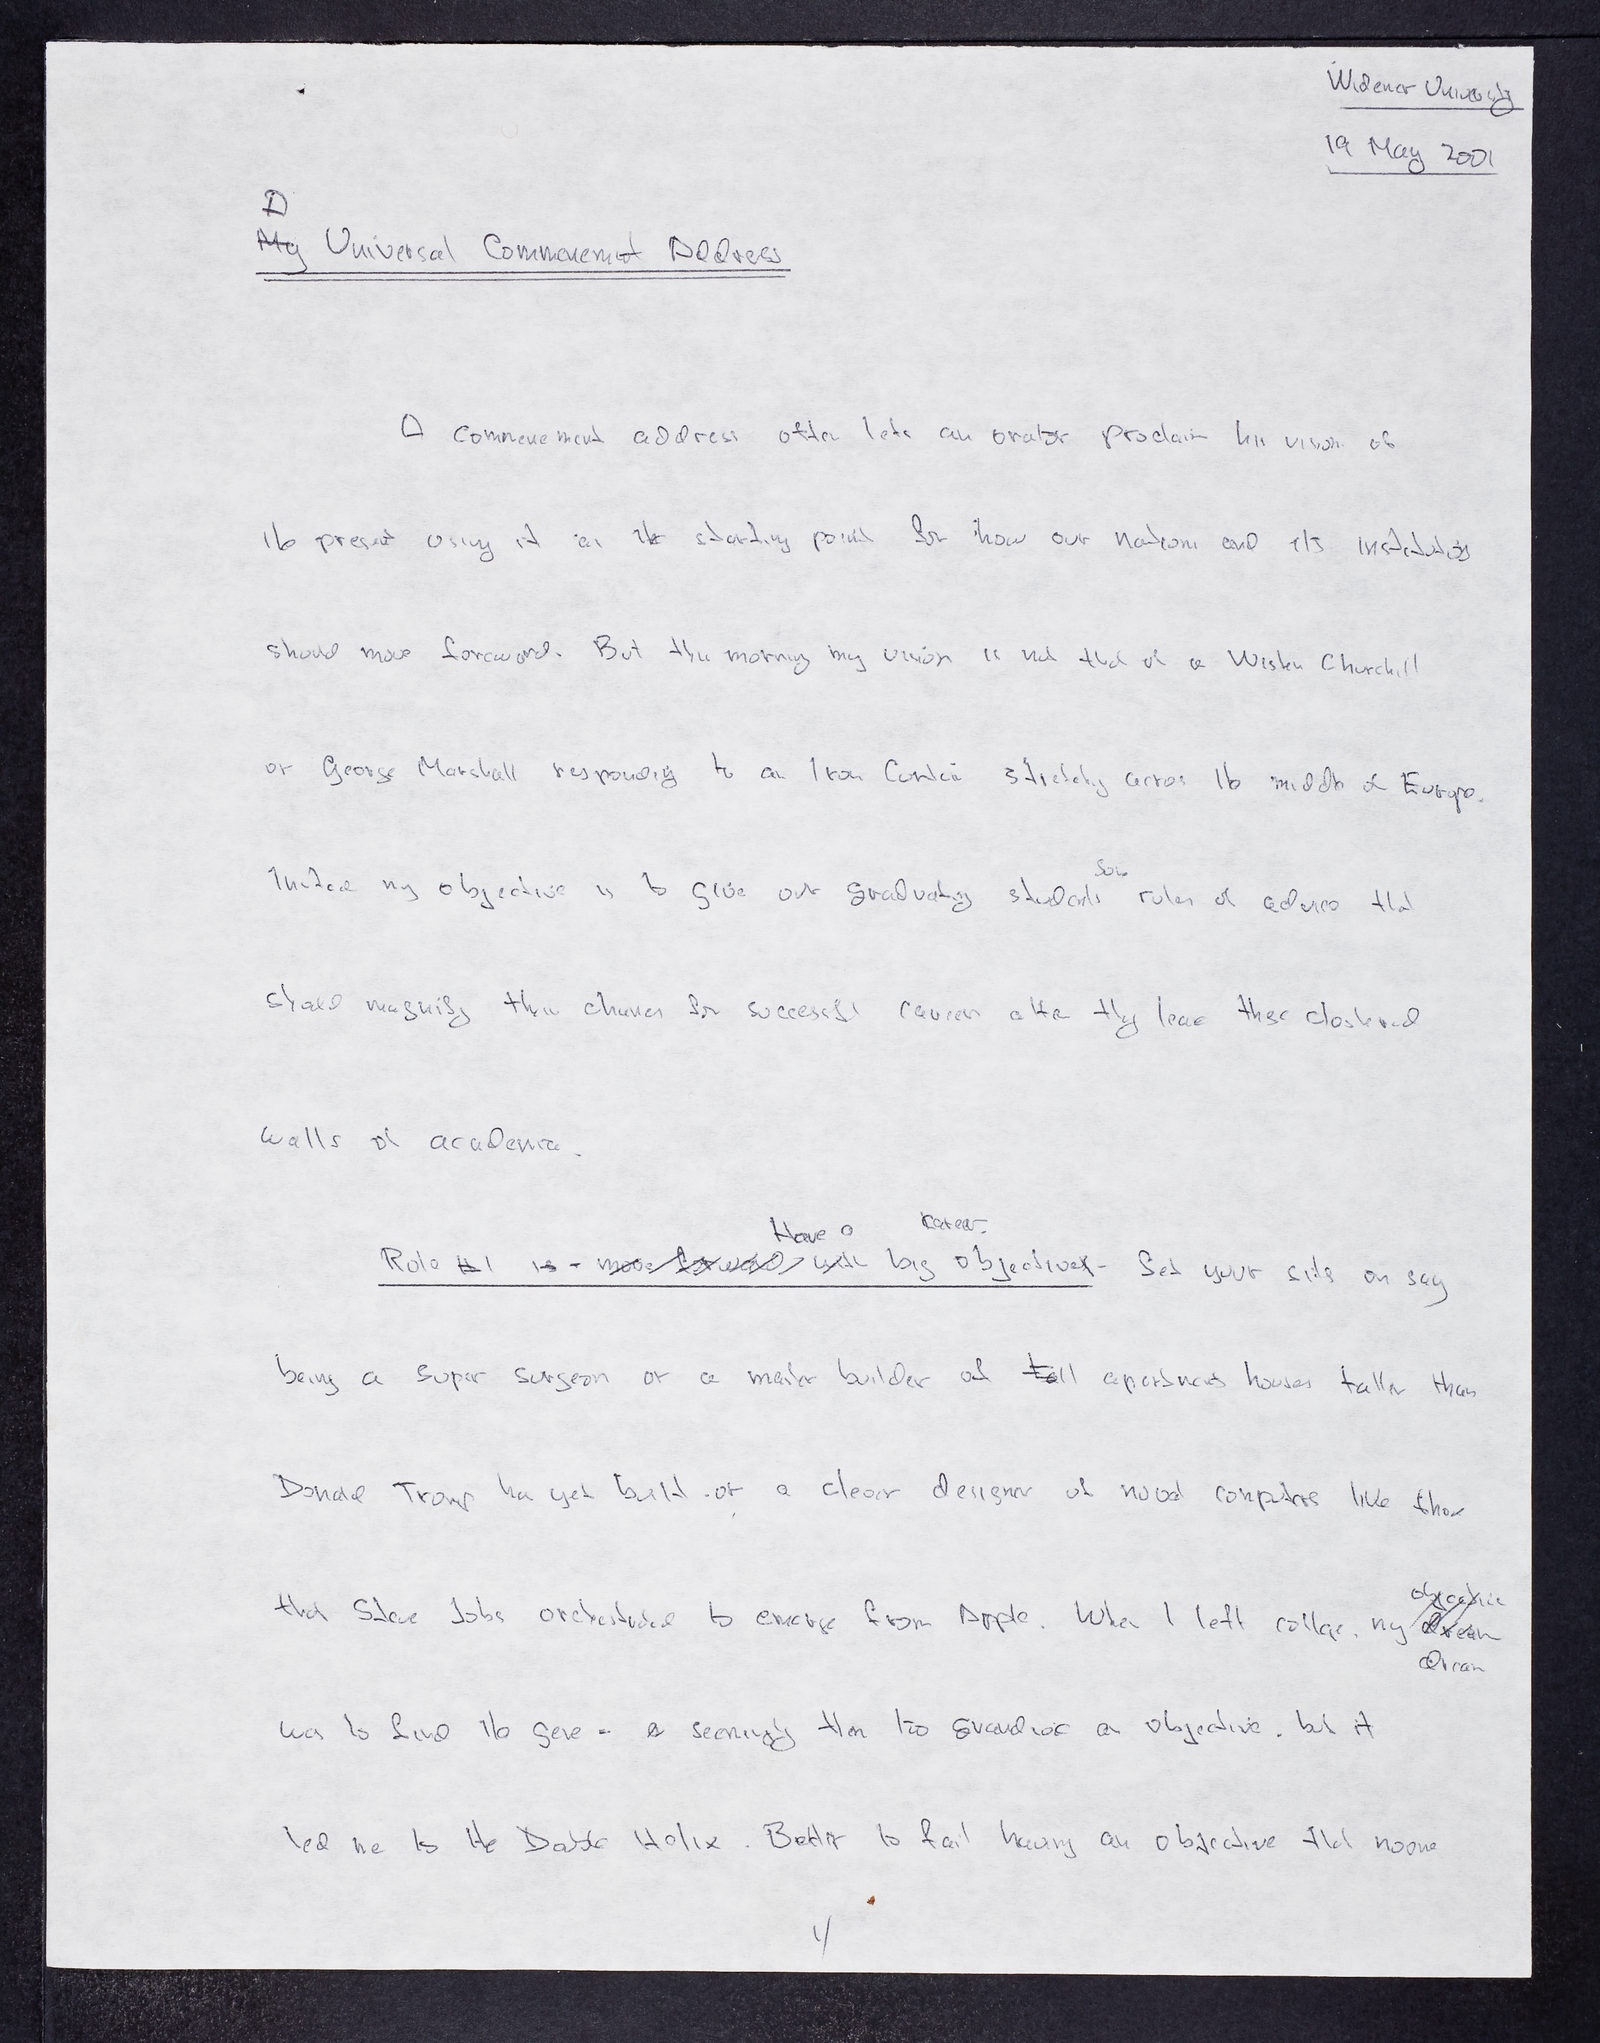 Widener University
19 May 2001
A
My Universal Commencement Address
A commencement address often lets an orator proclaim his vision of
the present using it as the starting point for how our nation and its institutions
should move forward. But this morning my vision is not that of a Winston Churchill
or George Marshall responding to an Iron Curtain stretching across the middle of Europe.
Instead my objective is to give our graduating students some rules of advice that
should magnify their chances for successful careers after they leave these cloistered
walls of academia.
Have a career
Rule #1 is - move forward with big objectives - Set your sites on say
being a super surgeon or a master builder of tall apartment houses taller than
Donald Trump has yet built or a clever designer of novel computers like those
objective
that Steve Jobs orchestrated to emerge from Apple. When I left college, my dream
dream
was to find the gene - a seemingly then too grandiose an objective, but it
led me to the Double Helix. Better to fail having an objective that noone
1/